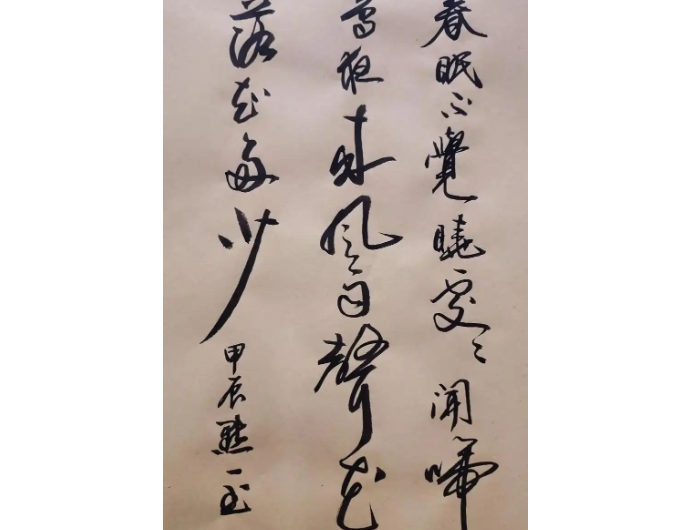 春眠不覺曉處々聞啼
鳥夜来風雨聲花
落知多少
甲辰